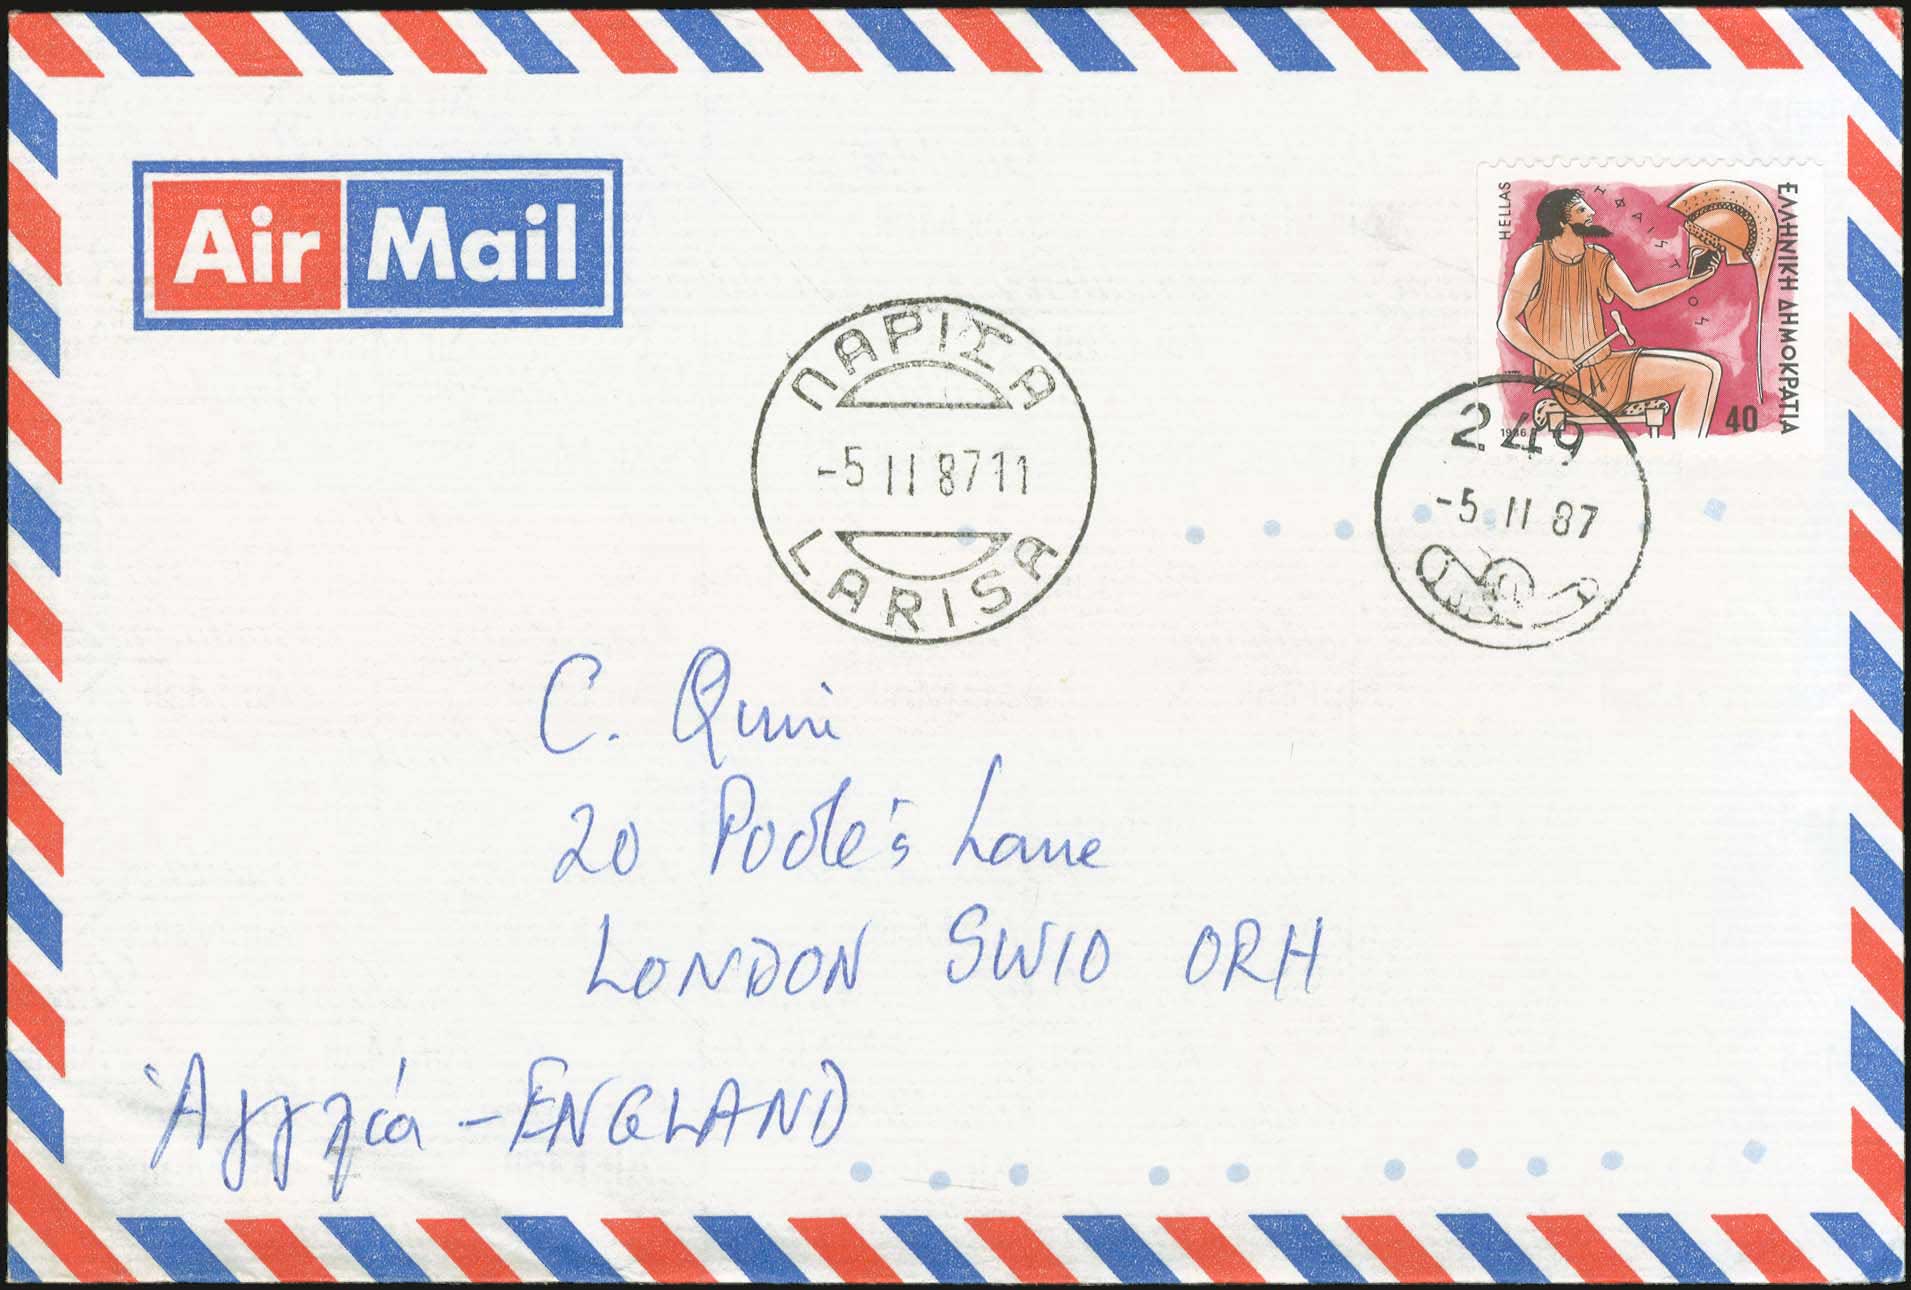 Air Mail
HELLAS
ΗΦΑΙΣΤΟΣ
ΕΛΛΗΝΙΚΗ ΔΗΜΟΚΡΑΤΙΑ
1986
40
ΛΑΡΙΣΑ
-5 II 87 11
LARISA
249
-5 II 87
C. Quin
20 Poole's Lane
LONDON SW10 0RH
Ἀγγλία - ENGLAND